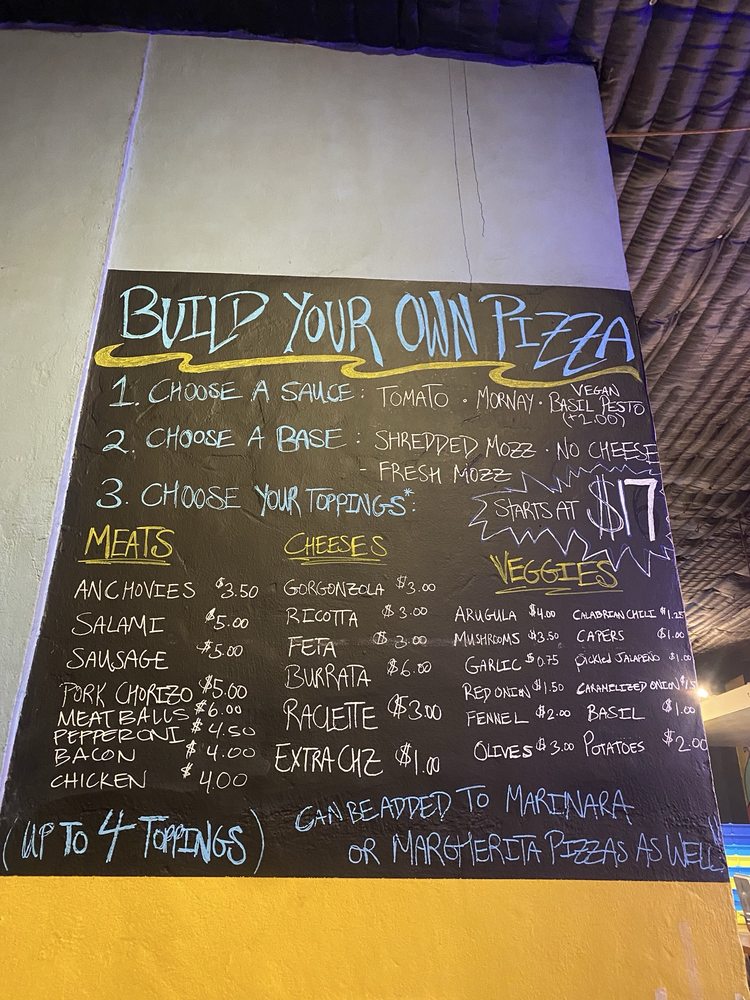 BUILD YOUR OWN PIZZA
1. CHOOSE A SAUCE: TOMATO · MORNAY · VEGAN BASIL PESTO (+2.00)
2. CHOOSE A BASE: SHREDDED MOZZ · NO CHEESE
- FRESH MOZZ
3. CHOOSE YOUR TOPPINGS*:
STARTS AT $17
MEATS
ANCHOVIES $3.50
SALAMI $5.00
SAUSAGE $5.00
PORK CHORIZO $5.00
MEATBALLS $6.00
PEPPERONI $4.50
BACON $4.00
CHICKEN $4.00
CHEESES
GORGONZOLA $3.00
RICOTTA $3.00
FETA $3.00
BURRATA $6.00
RACLETTE $3.00
EXTRA CHZ $1.00
VEGGIES
ARUGULA $4.00
MUSHROOMS $3.50
GARLIC $0.75
RED ONION $1.50
FENNEL $2.00
OLIVES $3.00
CALABRIAN CHILI $1.25
CAPERS $1.00
PICKLED JALAPEÑO $1.00
CARAMELIZED ONION
BASIL $1.00
POTATOES $2.00
(UP TO 4 TOPPINGS)
CAN BE ADDED TO MARINARA
OR MARGHERITA PIZZAS AS WELL